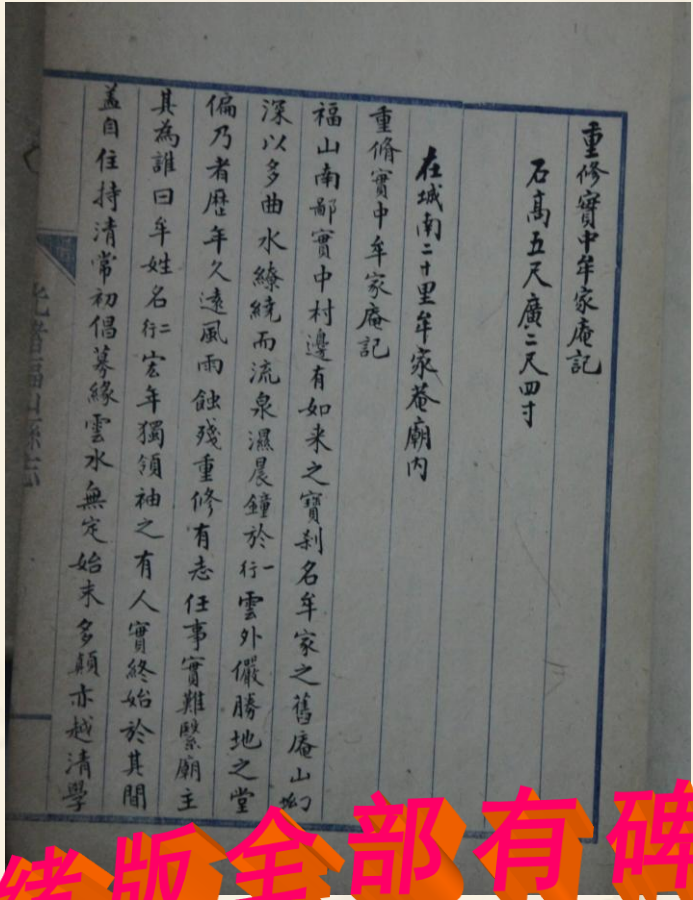 重修實中牟家庵記
石高五尺廣二尺四寸
在城南二十里牟家菴廟内
重脩實中牟家庵記
福山南鄙實中村邊有如来之寶刹名牟家之舊庵山坳
深以多曲水繚繞而流泉濕晨鐘於行一雲外儼勝地之堂
偏乃者歷年久遠風雨蝕殘重修有志任事實難緊廟主
其為誰曰牟姓名行二宏年獨領袖之有人實終始於其間
蓋自住持清常初倡募緣雲水無定始末多顛亦越清學
光緒福山縣志
緒版全部有碑